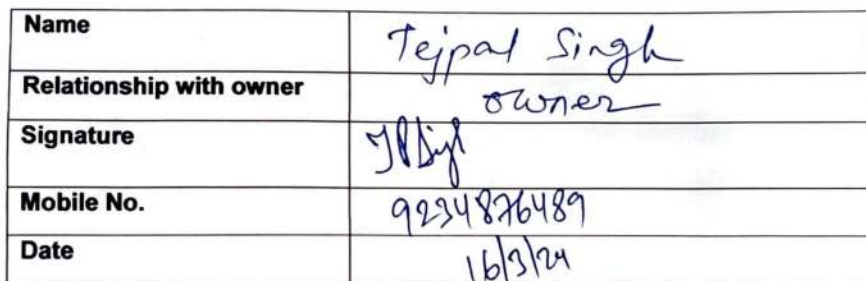 Name Tejpal Singh
Relationship with owner owner
Signature TPSingh
Mobile No. 9234876489
Date 16/3/24